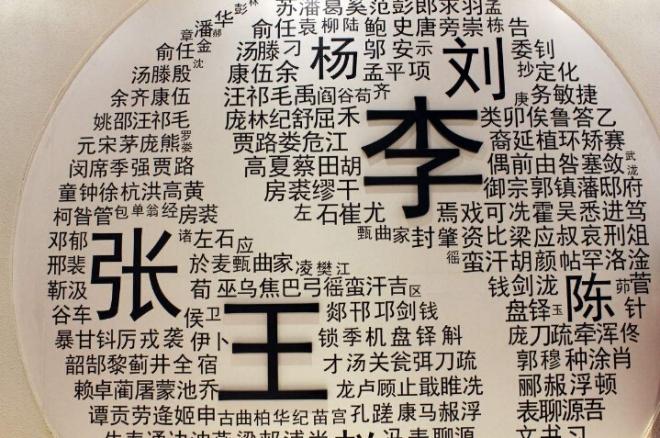 苏潘葛奚范彭郎求羽孟
潘华 俞任袁柳陆鲍史唐旁崇栋告
俞任金 汤滕刁 杨 邬安示 刘 委钊
汤滕殷 康伍余 孟平项 抄定化
余齐康伍 汪祁毛禹阎谷荀齐 李 庚务敏捷
姚邵汪祁毛 庞林纪舒屈禾 类卯俟鲁答乙
元宋茅庞熊 贾路娄危江 裔延植环矫赛
闵席季强贾路 高夏蔡田胡 偶前由昝塞敛
童钟徐杭洪高黄 房裘缪干 御宗郭镇藩邸府
柯昝管包单翁经房裘 左石崔尤 焉戏可冼霍吴悉进笃
邓郁 张 诸左石应 甄曲家封肇资比梁应叔哀刑俎
邢裴 於麦甄曲家凌樊江 徭蛮汗胡颜帖罕洛淦
靳汲 荀巫乌焦巴弓徭蛮汗吉区 钱剑泷 陈 茆菅
谷车 侯卫 王 郯邗邛剑钱 盘铎玉 针
暴甘钭厉戎袭伊卜 锁季机盘铎斛 庞刀疏牵浑佟
韶郜黎蓟井全宿 才汤关瓮弭刀疏 郭穆种涂肖
赖卓蔺屠蒙池乔 龙卢顾止戢睢冼 郦郝浮顿
谭贡劳逄姬申古曲柏华纪苗宫孔蹉康马赧浮 表聊源吾
冯表聊源 文书习